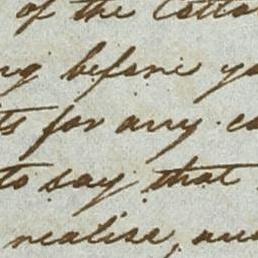 of the Cotta
ng before yo
ts for any ca
to say that
realise, and